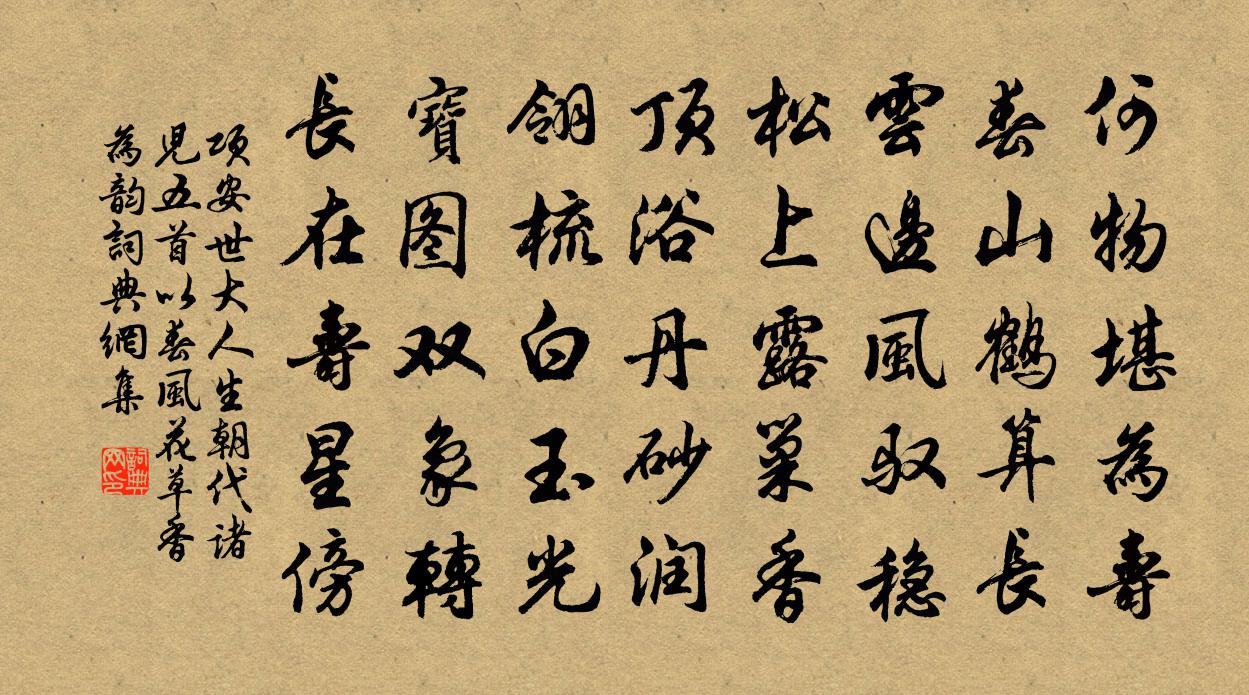 何物堪為壽
春山鶴算長
雲邊風驭穩
松上露巢香
顶浴丹砂润
翎梳白玉光
寶图双象轉
長在壽星傍
項安世大人生朝代诸
児五首以春風花草香
為韵詞典網集
詞典网印